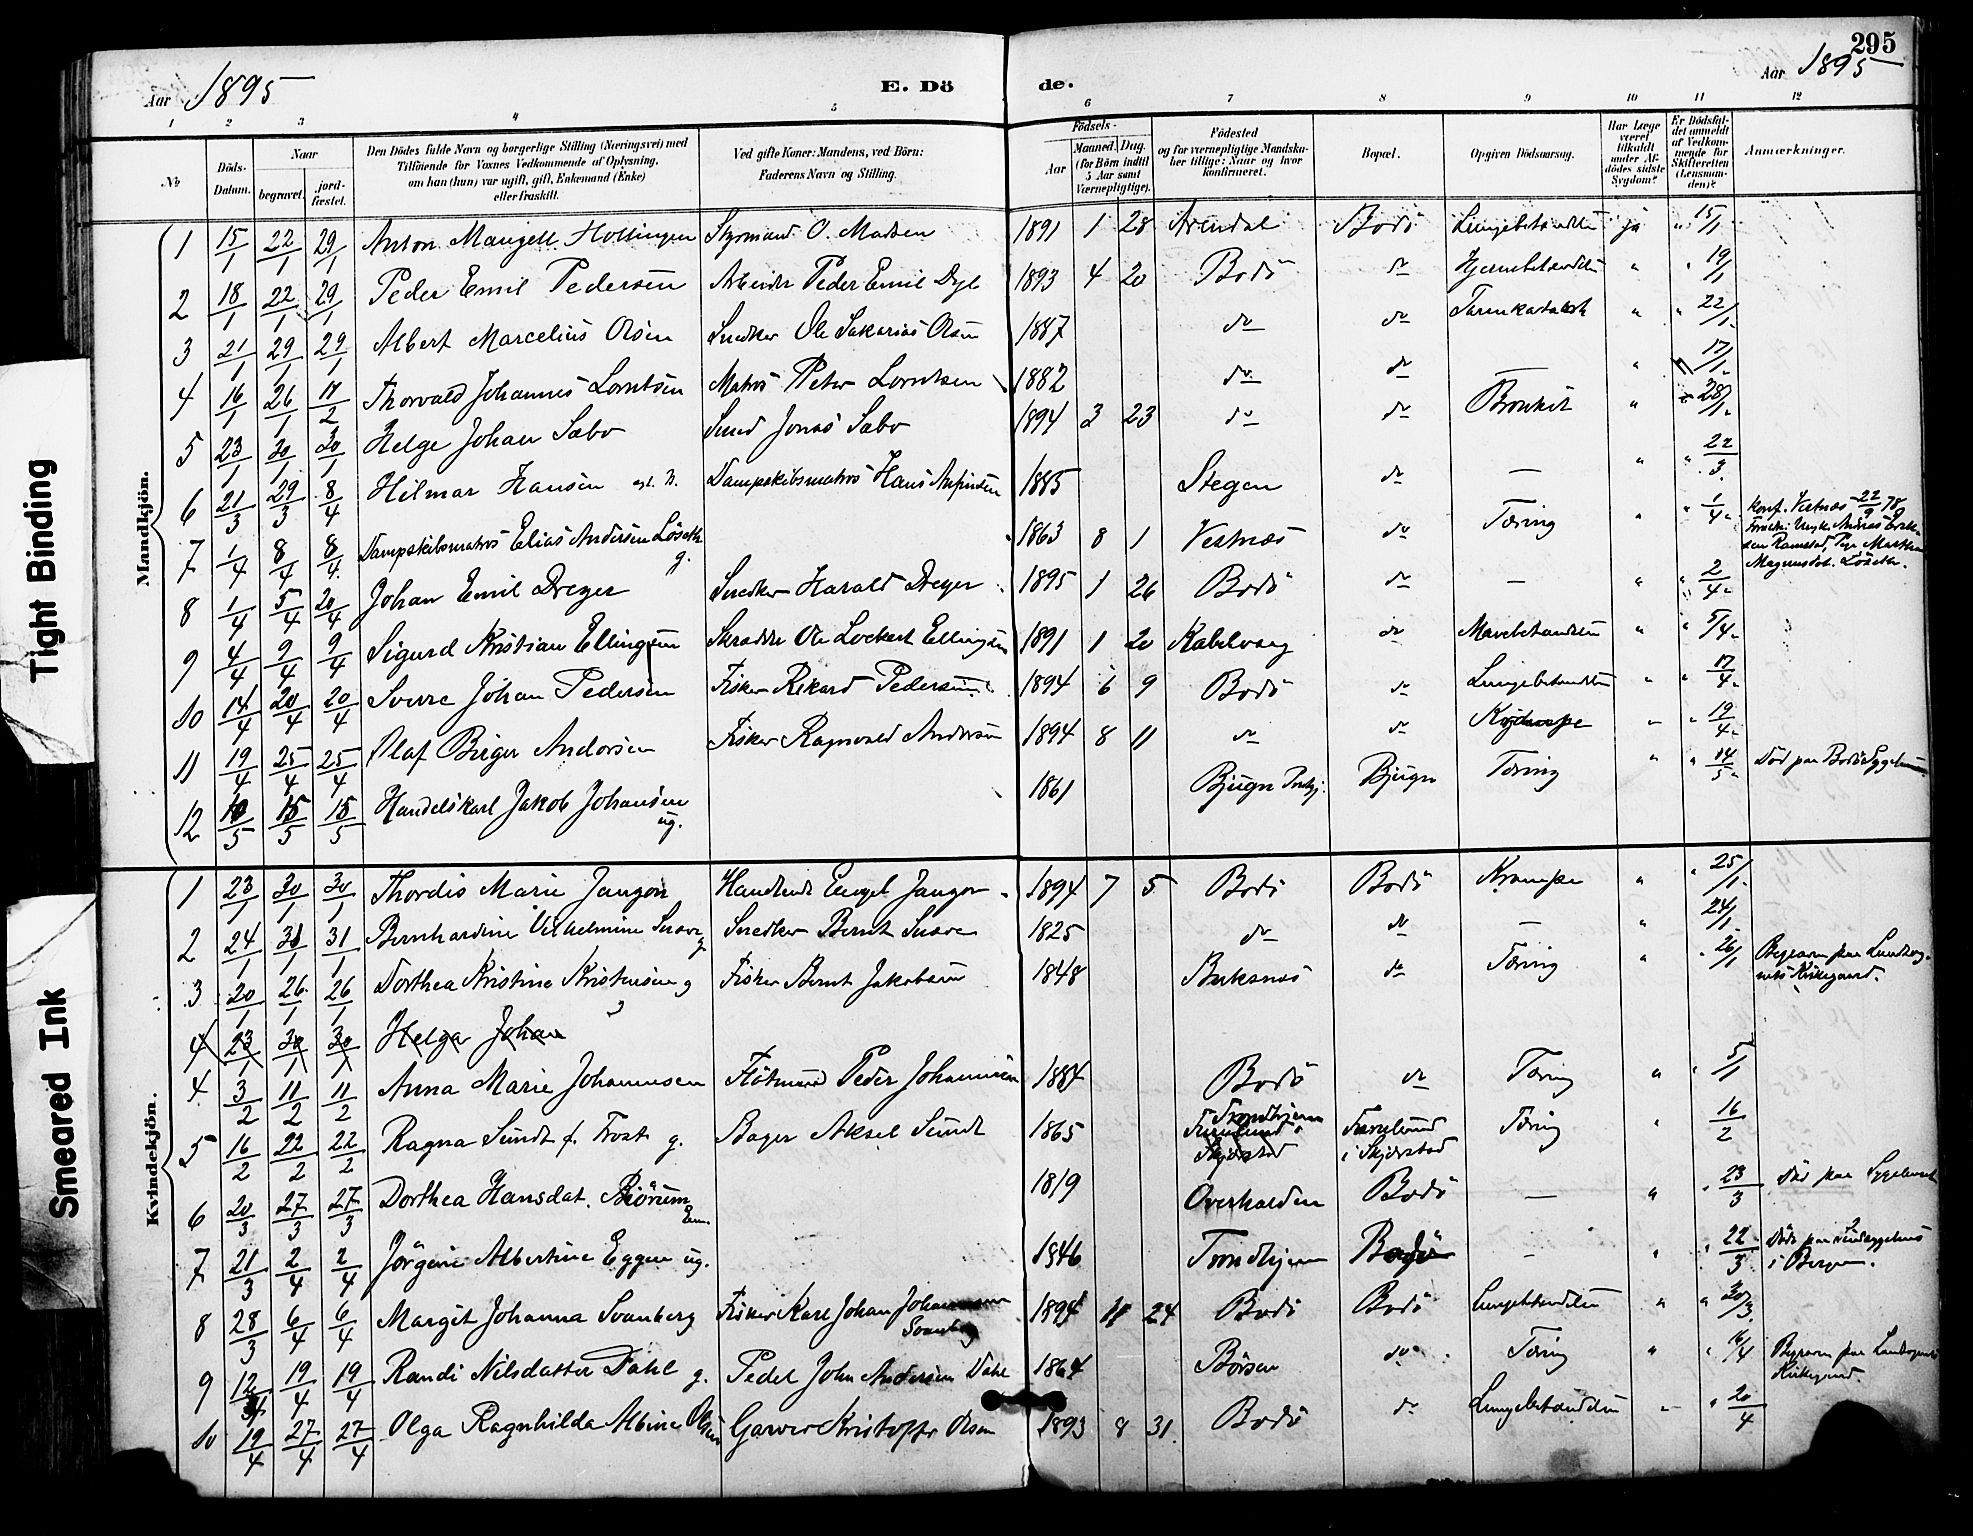 295
Aar 1895
E. Dö
de.
Aar 1895
1 2 3 4 5 6 7 8 9 10 11 12
No
Döds-Datum.
Naar
begravet.
jord-fæstet.
Den Dödes fulde Navn og borgerlige Stilling (Næringsvei) med
Tilföiende for Voxnes Vedkommende af Oplysning,
om han (hun) var ugift, gift, Enkemand (Enke)
eller fraskilt.
Ved gifte Koner: Mandens, ved Börn:
Faderens Navn og Stilling.
Födsels-
Aar
Maaned. Dag.
(for Börn indtil
5 Aar samt
Værnepligtige).
Födested
og for værnepligtige Mandska-
ber tillige: Naar og hvor
konfirmeret.
Bopæl.
Opgiven Dödsaarsag.
Har Læge
været
tilkaldt
under Af-
dödes sidste
Sygdom?
Er Dödsfal-
det anmeldt
af Vedkom-
mende for
Skifteretten
(Lensman-
den)?
Anmærkninger.
Mandkjön.
1 15/1 22/1 29/1 Anton Mangell Hollingen Styrmand O. Madsen 1891 1 28 Arendal Bodö Lungebetændelse ja " 15/1
2 18/1 22/1 29/1 Peder Emil Pedersen Arbeider Peder Emil 1893 4 20 Bodö do Hjernebetændelse " " 19/1
3 21/1 29/1 29/1 Albert Marcelius Olsen Snedker Ole Sakarias Olsen 1887 do do Tarmkatarrh " " 22/1
4 16/1 26/1 17/2 Thorvald Johannes Lorntsen Matros Peter Lorntsen 1882 do do — " 17/1
5 23/1 30/1 30/1 Helge Johan Sæbo Smed Jonas Sæbo 1894 3 23 do do Bronkit " " 28/1
6 21/3 29/3 8/4 Hilmar Hansen Dampskibsmatros Hans 1885 Stegen do — " " 22/3
7 1/4 8/4 8/4 Dampskibsmatros Elias Andersen Löseth g. 1863 8 1 Vestnæs do Tæring " " 1/4 Konf. Vestnæs 22/9 78
Magnusdat. Löseth.
8 1/4 5/4 20/4 Johan Emil Dreyer Snedker Harald Dreyer 1895 1 26 Bodö do — " " 2/4
9 4/4 9/4 9/4 Sigurd Kristian Ellingsen Skrædder Ole Lockert Ellingsen 1891 1 20 Kabelvaag do Mavebetændelse " " 5/4
10 14/4 20/4 20/4 Sverre Johan Pedersen Fisker Rikard Pedersen 1894 6 9 Bodö do Lungebetændelse " " 17/4
11 19/4 25/4 25/4 Olaf Birger Andersen Fisker Ragnvald Andersen 1894 8 11 do do " " 19/4
12 10/5 15/5 15/5 Handelskarl Jakob Johansen ug. 1861 Bjugn Bjugn Tæring " " 14/5 Död paa Bodö Sygehus
Kvindekjön.
1 23/1 30/1 30/1 Thordis Marie Jangon Engel Jangon 1894 7 5 Bodö Bodö Krampe " " 25/1
2 24/1 31/1 31/1 Bernhardine Vilhelmine Snare g Snedker Bernt Snare 1825 do do — " 24/1
3 20/1 26/1 26/1 Dorthea Kristine Kristensen g Fisker Bernt Jakobsen 1848 Buksnæs do Tæring " " 26/1 Begraven paa Landsog-
nets Kirkegaard.
4 23/1 30/1 30/1 Helga Johan
4 3/2 11/2 11/2 Anna Marie Johannesen Flötmand Peder Johannesen 1884 Bodö do Tæring " " 5/1
5 16/2 22/2 22/2 Ragna Sundt f. Frost g. Bager Aksel Sundt 1865 Trondhjem Furulund i Skjerstad Furulund i Skjerstad Tæring " 16/2
6 20/3 27/3 27/3 Dorthea Hansdat. Björum Enke. 1819 Overhalden Bodö — " " 23/3 Död paa Sygehuset
7 21/3 2/4 2/4 Jörgine Albertine Eggen ug. 1846 Trondhjem Bodö — " " 22/3 Död paa Sindssygehus
i Bergen.
8 28/3 6/4 6/4 Margit Johanna Svanberg Fisker Karl Johan Johannesen Svanberg 1894 11 24 Bodö Bodö Lungebetændelse " " 30/3
9 12/4 19/4 19/4 Randi Nilsdatter Dahl g. Pedel John Andersen Dahl 1864 Börsen do Tæring " " 16/4 Begraven paa Landsognets
Kirkegaard.
10 19/4 27/4 27/4 Olga Ragnhilda Albine Olsen Garver Kristoffer Olsen 1893 8 31 Bodö do Lungebetændelse " " 20/4
Tight Binding
Smeared Ink